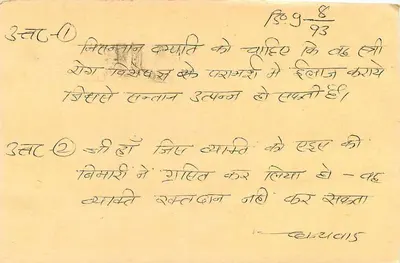 दि० 9-8/93
उत्तर-① निसन्तान दम्पति को चाहिए कि वह स्त्री
रोग विशेषज्ञ के परामर्श में ईलाज कराये
जिससे सन्तान उत्पन्न हो सकती है।
उत्तर-② जी हाँ जिए व्यक्ति को एड्स की
बिमारी ने ग्रसित कर लिया हो। - वह
व्यक्ति रक्तदान नहीं कर सकता
धन्यवाद